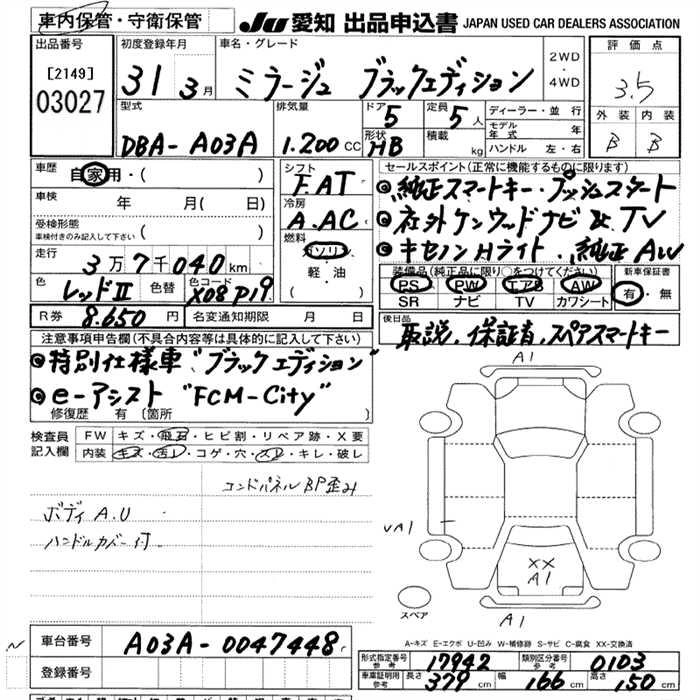 車内保管・守衛保管
JU 愛知 出品申込書 JAPAN USED CAR DEALERS ASSOCIATION
出品番号
[2149]
03027
初度登録年月
31 3月
車名・グレード
ミラージュ ブラックエディション
2WD
・
4WD
評価点
3.5
外装 内装
B B
型式
DBA-A03A
排気量
1.200 CC
ドア
5
形状
HB
定員
5人
積載
kg
ディーラー・並行
モデル年式 年
ハンドル 左・右
車歴
自家用・( )
車検
年 月( 日)
受検形態
車検付きのみ記入して下さい
( )
走行
3万7千040km
色
レッドⅡ
色替
色コード
X08 P19
R券
8.650円
名変通知期限 月 日
シフト
F.AT
冷房
A.AC
燃料
ガソリン
・
軽・油
( )
セールスポイント(正常に機能するものに限ります)
◎純正スマートキー・プッシュスタート
◎社外ケンウッドナビ&TV
◎キセノンHライト.純正AW
装備品(純正品に限り○をつけてください)
PS PW エアB AW
SR ナビ TV カワシート
新車保証書
有・無
後日品
取説.保証書.スペアスマートキー
注意事項申告欄(不具合内容等は具体的に記入して下さい)
◎特別仕様車"ブラックエディション"
◎e-アシスト "FCM-City"
修復歴 有 〔箇所 〕
検査員
記入欄
FW キズ・飛石・ヒビ割・リペア跡・X要
内装 キズ・汚レ・コゲ・穴・スレ・キレ・破レ
コンドパネルBP歪み
ボディA.U
ハンドルカバー付
A1
UA1
XX
A1
スペア
A1
A-キズ E-エクボ U-凹み W-補修跡 S-サビ C-腐食 XX-交換済
車台番号
A03A-0047448
登録番号
形式指定番号
参考
17942
類別区分番号
参考
0103
車庫証明用
参考
長さ 379cm 幅 166cm 高さ 150cm